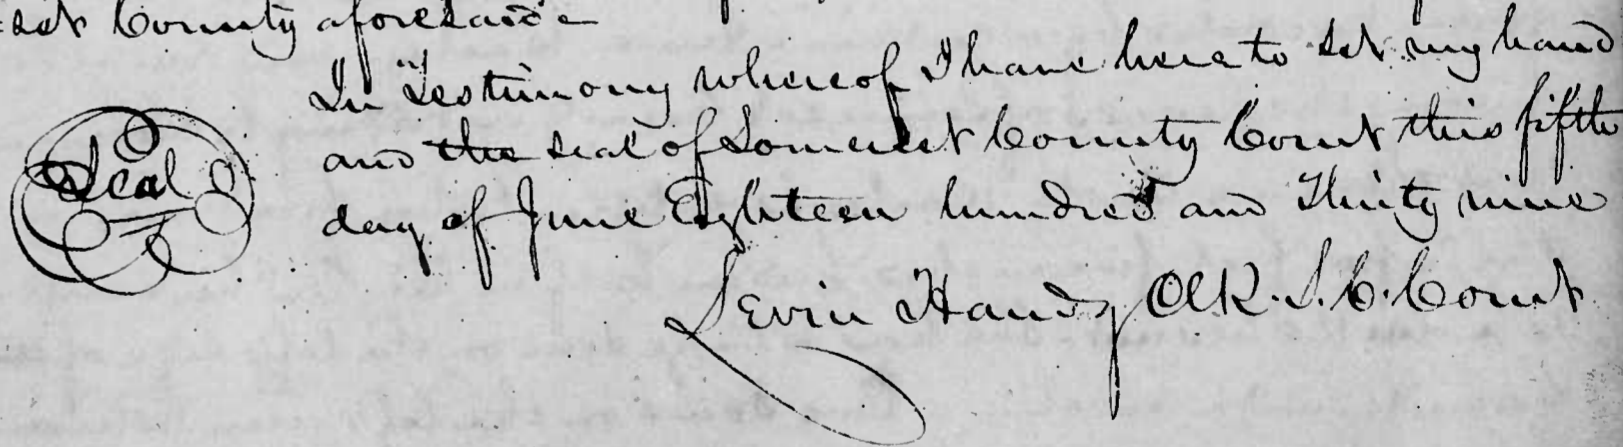 =set County aforesaid
In Testimony whereof I have here to set my hand
and the seal of Somerset County Court this fifth
Seal
day of June Eighteen hundred and Thirty nine
Levin Handy Clk. S. C. Court